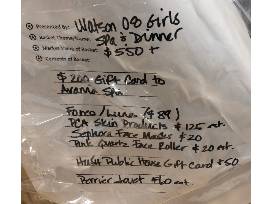 Presented By: Watson 08 Girls
Basket Theme/Name: Spa & Dinner
Market Value of Basket: $550+
Contents of Basket:
$200 Gift Card to
Spa
($89)
PCA Skin Products $125 est.
Sephora Face Masks $20
Pink Quartz Face Roller $20 est.
Hush Public House Gift Card $50
$60 est.